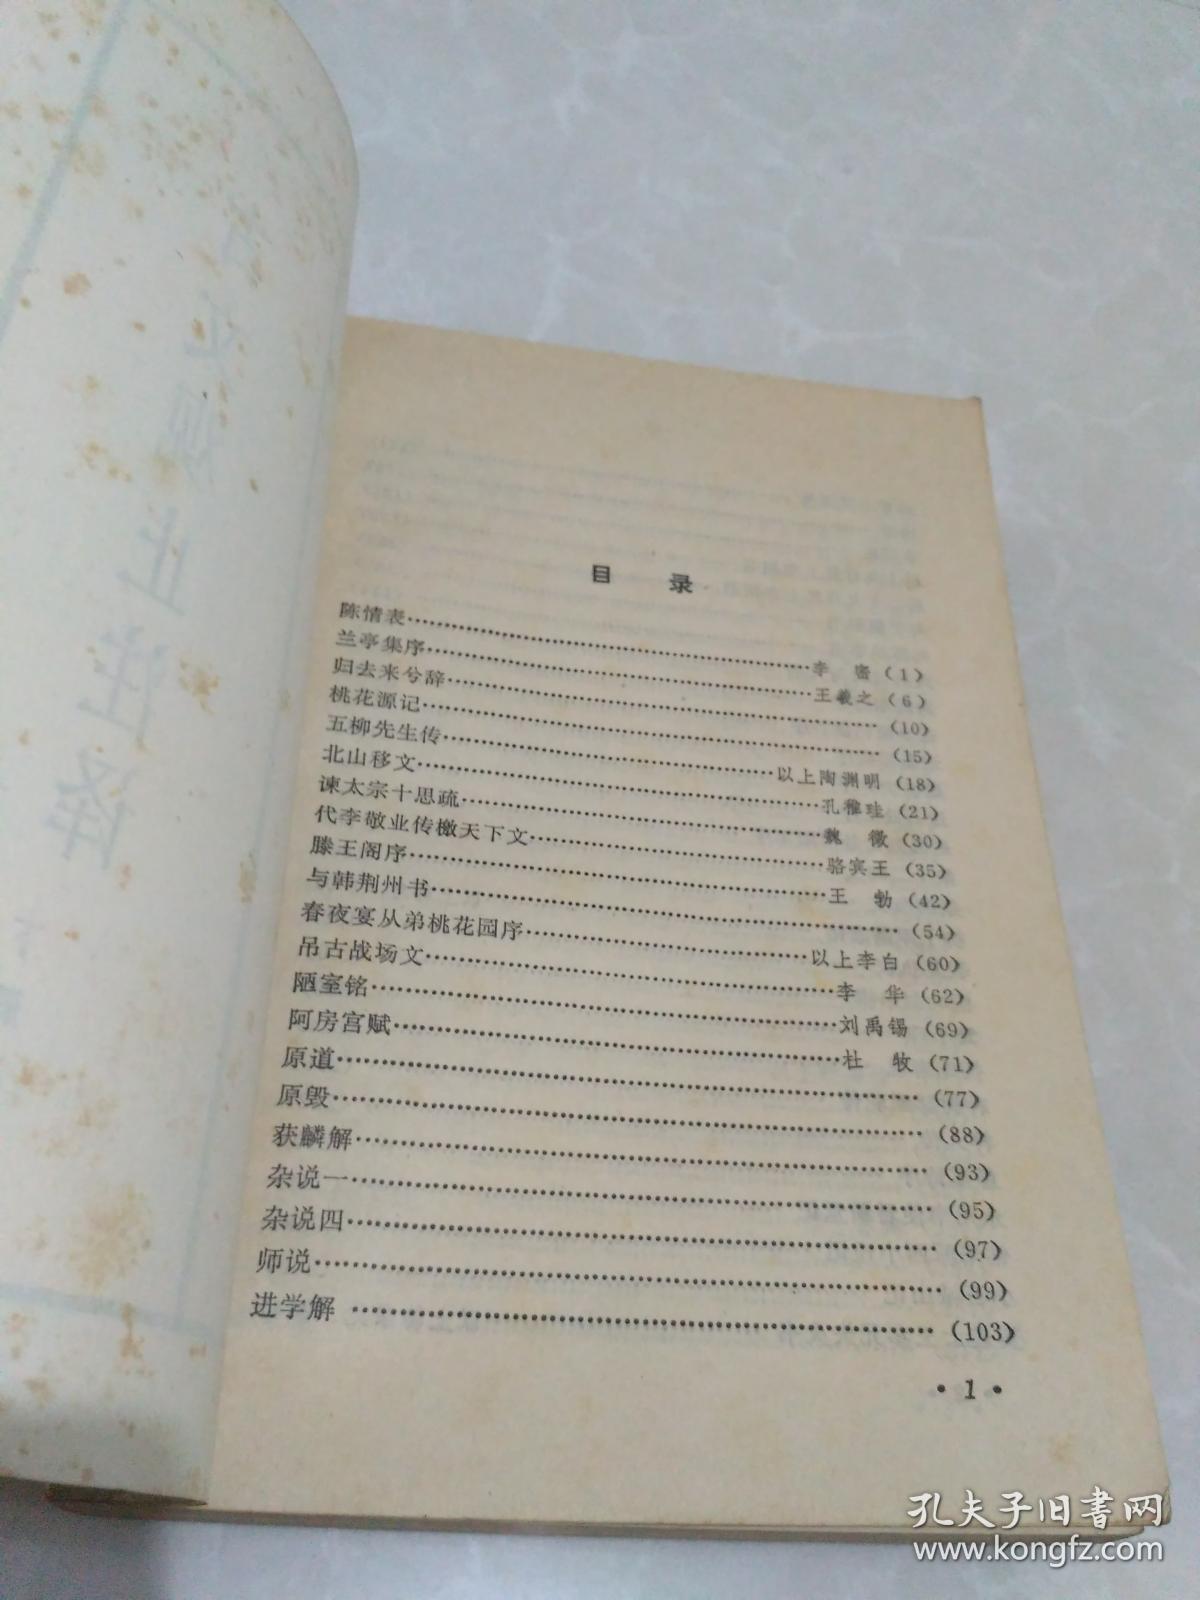 目 录
陈情表……李 密（1）
兰亭集序……王羲之（6）
归去来兮辞……（10）
桃花源记……（15）
五柳先生传……以上陶渊明（18）
北山移文……孔稚珪（21）
谏太宗十思疏……魏 徵（30）
代李敬业传檄天下文……骆宾王（35）
滕王阁序……王 勃（42）
与韩荆州书……（54）
春夜宴从弟桃花园序……以上李白（60）
吊古战场文……李 华（62）
陋室铭……刘禹锡（69）
阿房宫赋……杜 牧（71）
原道……（77）
原毁……（88）
获麟解……（93）
杂说一……（95）
杂说四……（97）
师说……（99）
进学解……（103）
• 1 •
孔夫子旧书网
www.kongfz.com